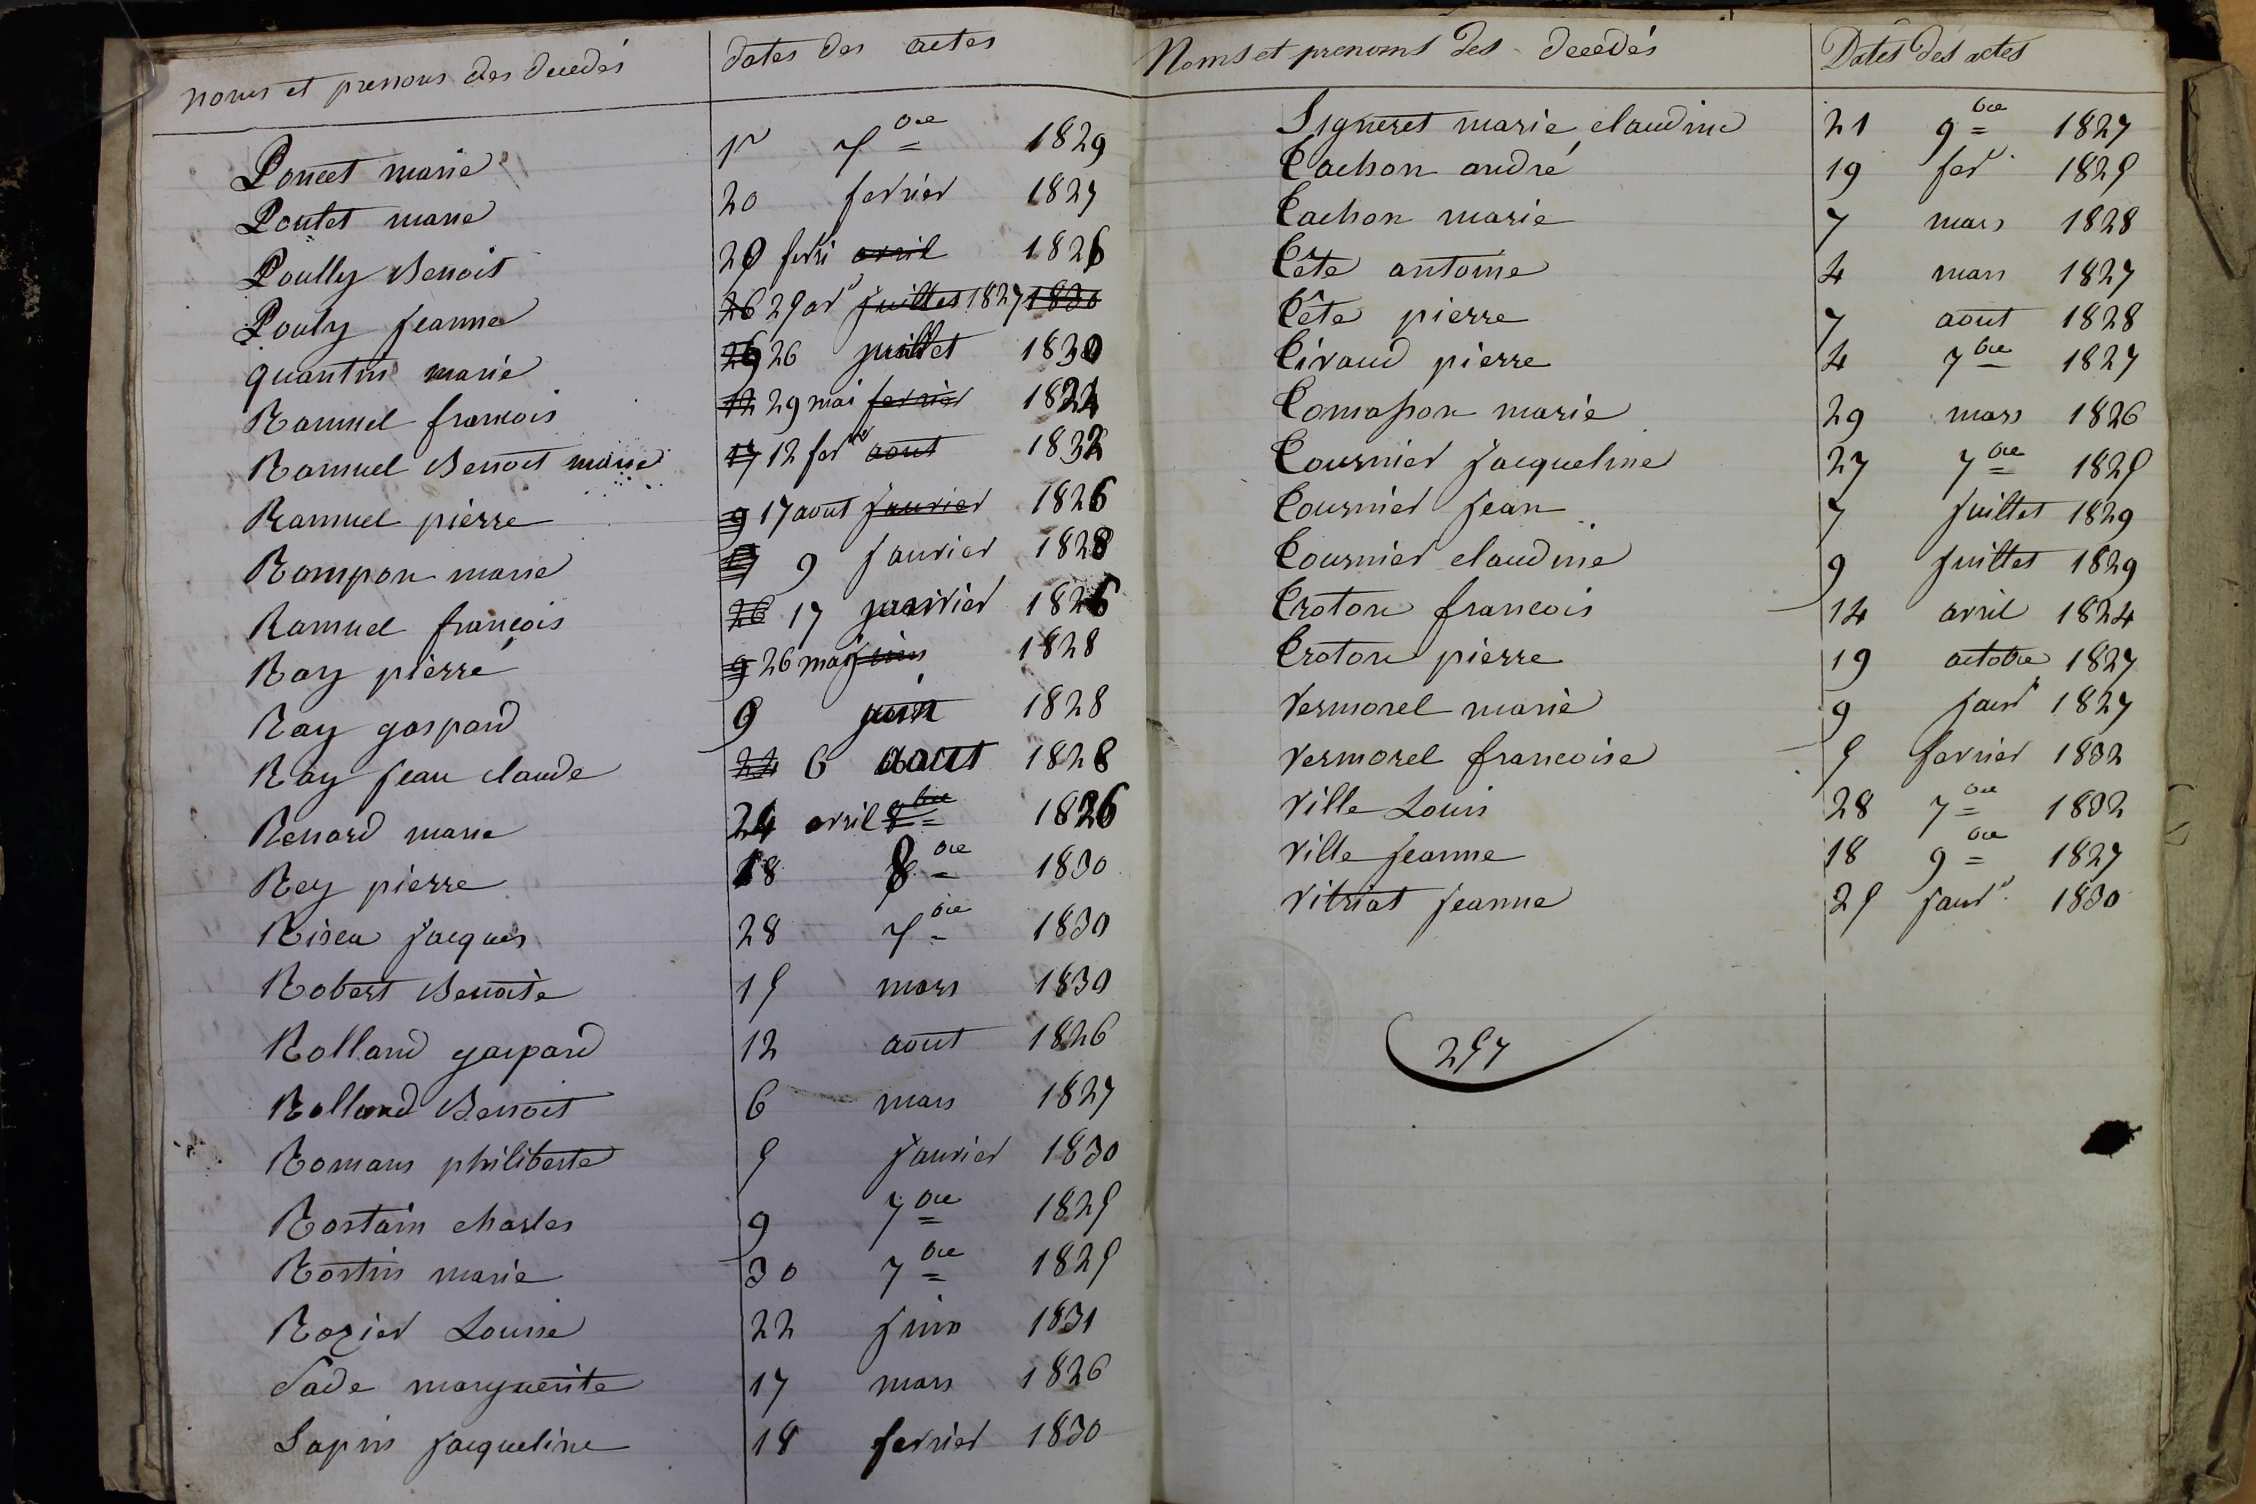 noms et prenoms des decedés dates des actes
Poncet marie 1er 7bre 1829
Poulet marie 20 fevrier 1827
Poully Benoit 20 fevri avril 1826
Pouly jeanne 26 25 avl juillet 1827 1830
quantin marie 26 juillet 1830
Ramuel francois 12 29 mai fevrier 1824
Ramuel Benoit marie 17 12 fevrier aout 1832
Ramuel pierre 9 17 aout janvier 1826
Rampon marie 17 9 janvier 1828
Ramuel françois 26 17 janvier 1826
Ray pierre 9 26 mai juin 1828
Ray gaspard 9 juin 1828
Ray jean claude 24 6 aout 1828
Renard marie 24 avril 8bre 1826
Rey pierre 18 8bre 1830
Riseu jacques 28 7bre 1830
Robert Benoite 15 mars 1830
Rolland gaspard 12 aout 1826
Rolland Benoit 6 mars 1827
Romans philiberte 5 janvier 1830
Rostain charles 9 7bre 1825
Rostin marie 30 7bre 1825
Rozier Louise 22 juin 1831
Sade marguerite 17 mars 1826
Sapin jacqueline 18 fevrier 1830
Noms et prenoms des decedés Dates des actes
Signeret marie claudine 21 9bre 1827
Tachon andré 19 fevr 1825
Tachon marie 7 mars 1828
Tête antoine 4 mars 1827
Tête pierre 7 aout 1828
Tivaud pierre 4 7bre 1827
Tomasson marie 29 mars 1826
Tournier jacqueline 27 7bre 1825
Tournier jean 7 juillet 1829
Tournier claudine 9 juillet 1829
Troton francois 14 avril 1824
Troton pierre 19 octobre 1827
Vermorel marie 9 janvr 1827
Vermorel francoise 5 fevrier 1832
Ville Louis 28 7bre 1832
Ville jeanne 18 9bre 1827
Vitriat jeanne 25 janvr 1830
257